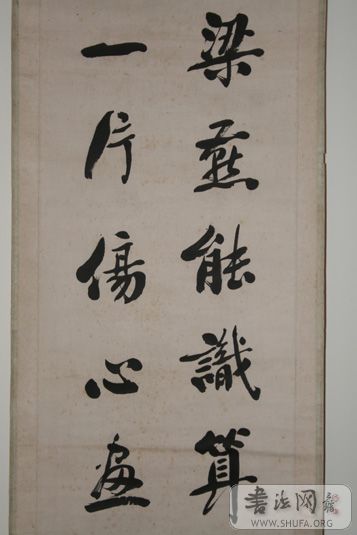 梁燕能識算
一片傷心畫
書法网
WWW.SHUFA.ORG